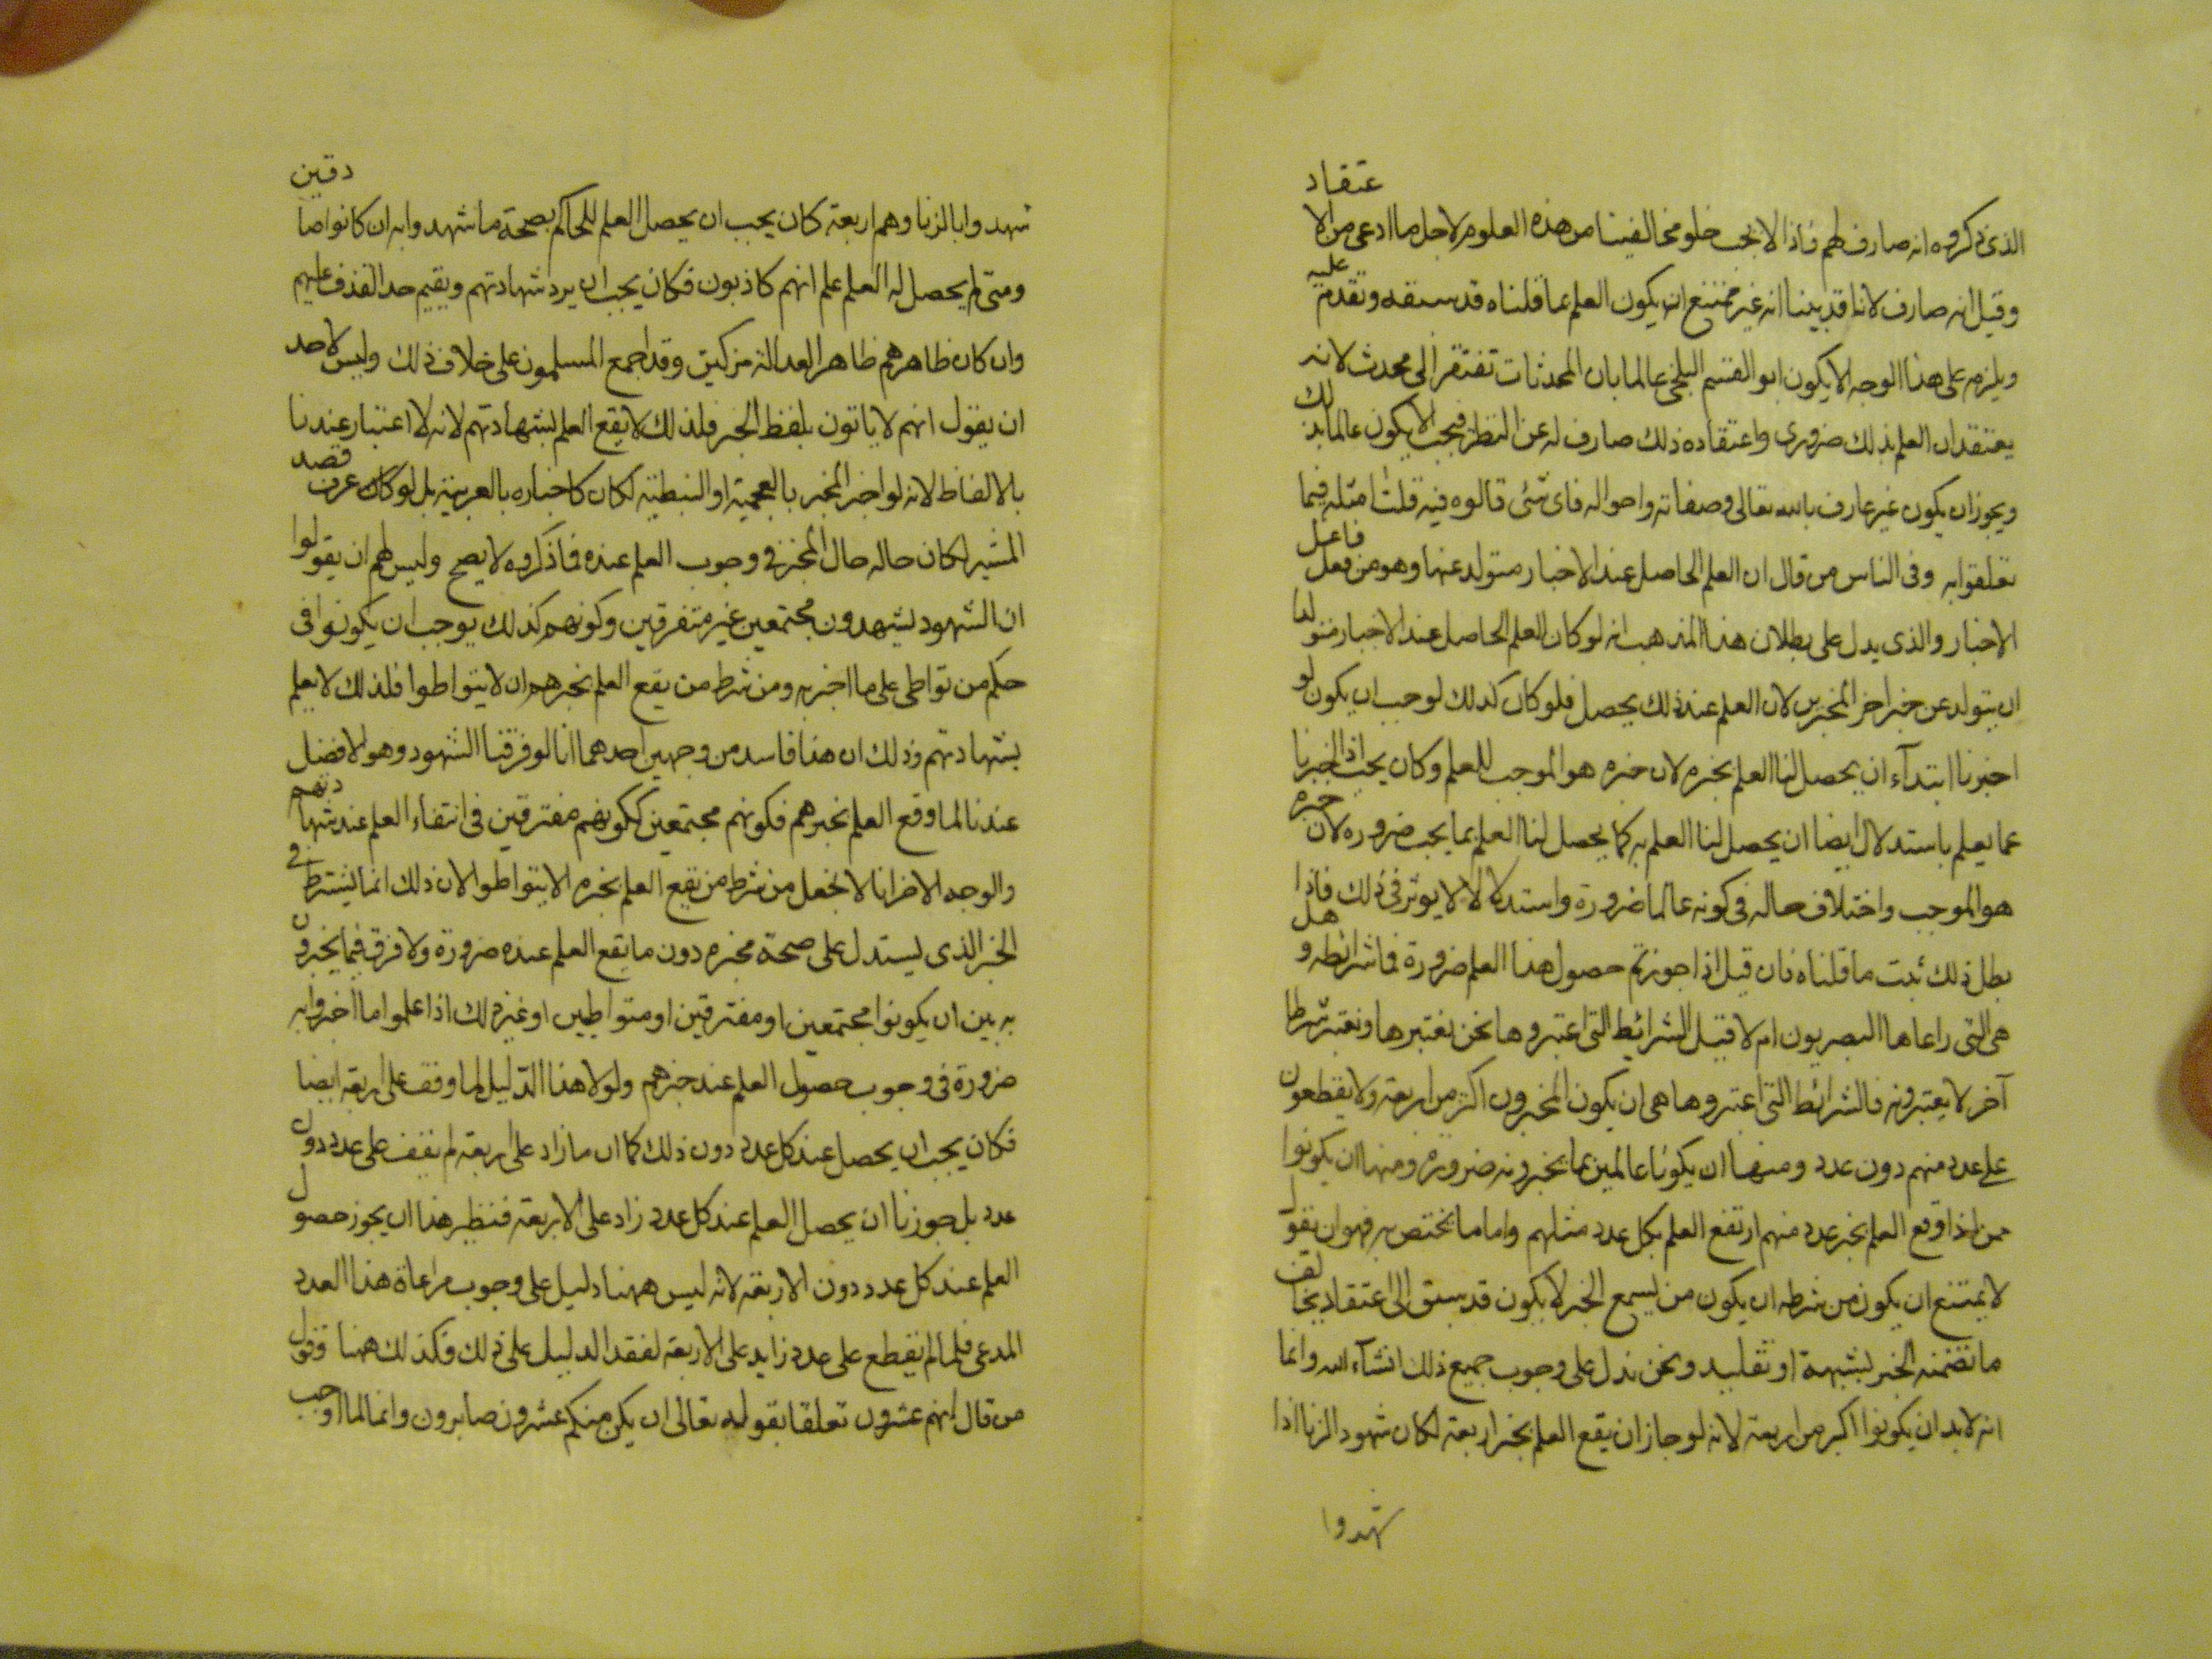 الذى ذكروه انه صارف لهم فاذا لا يجب خلو مخالفينا من هذه العلوم لاجل ما ادعى من الاعتقاد
وقيل انه صارف لانا قد بينا انه غير ممتنع ان يكون العلم بما قلناه قد سبقه وتقدم عليه
ويلزم على هذا الوجه الا يكون ابو القسم البلخى عالما بان المحدثات تفتقر الى محدث لانه
يعتقد ان العلم بذلك ضرورى واعتقاده ذلك صارف له عن النظر فيجب الا يكون عالما بذلك
ويجوز ان يكون غير عارف بالله تعالى وصفاته واحواله فاى شئى قالوه فيه قلنا مثله فيما
تعلقوا به وفى الناس من قال ان العلم الحاصل عند الاخبار متولد عنها وهو من فعل فاعل
الاخبار والذى يدل على بطلان هذا المذهب انه لو كان العلم الحاصل عند الاخبار متولدا
ان يتولد عن خبر اخر المخبرين لان العلم عند ذلك يحصل فلو كان كذلك لوجب ان يكون لو
اخبرنا ابتدآء ان يحصل لنا العلم بخبره لان خبره هو الموجب للعلم وكان يجب اذا اخبرنا
عما يعلم باستدلال ايضا ان يحصل لنا العلم به كما يحصل لنا العلم بما يجب ضروره لان خبره
هو الموجب واختلاف حاله فى كونه عالما ضرورة واستدلالا لا يوثر فى ذلك فاذا
بطل ذلك ثبت ما قلناه فان قيل اذا جوزتم حصول هذا العلم ضرورة فما شرائطه وهل
هى التى راعاها البصريون ام لا قيل الشرائط التى اعتبروها نحن نعتبرها ونعتبر شرطا
آخر لا يعتبرونه فالشرائط التى اعتبروها هى ان يكون المخبرون اكثر من اربعة ولا يقطعون
على عدد منهم دون عدد ومنها ان يكونا عالمين بما يخبرونه ضرورة ومنها ان يكونوا
ممن اذا وقع العلم بخبر عدد منهم ارتفع العلم بكل عدد مثلهم واما ما نختص به فهو ان نقول
لا يمتنع ان يكون من شرطه ان يكون من يسمع الخبر لا يكون قد سبق الى اعتقاد يخالف
ما تضمنه الخبر لشبهة او تقليد ونحن ندل على وجوب جميع ذلك انشآء الله وانما
انه لا بد ان يكونوا اكبر من اربعة لانه لو جاز ان يقع العلم بخبر اربعة لكان شهود الزنا اذا
شهدوا
شهدوا بالزنا وهم اربعة كان يجب ان يحصل العلم للحاكم بصحة ما شهدوا به ان كانوا صادقين
ومتى لم يحصل له العلم علم انهم كاذبون فكان يجب ان يرد شهادتهم ويقيم حد القذف عليهم
وان كان ظاهرهم ظاهر العدالة مزكين وقد اجمع المسلمون على خلاف ذلك وليس لاحد
ان يقول انهم لا ياتون بلفظ الخبر فلذلك لا يقع العلم بشهادتهم لانه لا اعتبار عندنا
بالالفاظ لانه لو اخبر المخبر بالعجمية او النبطية لكان كاخباره بالعربية بل لو كان عرف قصد
المشير لكان حاله حال المخبر فى وجوب العلم عنده فما ذكروه لا يصح وليس لهم ان يقولوا
ان الشهود يشهدون مجتمعين غير متفرقين وكونهم كذلك يوجب ان يكونوا فى
حكم من تواطى على ما اخبر به ومن شرط من يقع العلم بخبرهم ان لا يتواطوا فلذلك لا يعلم
بشهادتهم وذلك ان هذا فاسد من وجهين احدهما انا لو فرقنا الشهود وهو الافضل
عندنا لما وقع العلم بخبرهم فكونهم مجتمعين ككونهم مفترقين فى انتفاء العلم عند شهادتهم
والوجه الاخر انا لا نجعل من شرط من يقع العلم بخبره الا يتواطوا لان ذلك انما يشترط فى
الخبر الذى يستدل على صحة مخبره دون ما يقع العلم عنده ضرورة ولا فرق فيما يخبرون
به بين ان يكونوا مجتمعين او مفترقين او متواطيين او غير ذلك اذا علموا ما اخبروا به
ضرورة فى وجوب حصول العلم عند خبرهم ولولا هذا الدليل لما وقف على اربعة ايضا
فكان يجب ان يحصل عند كل عدد دون ذلك كما ان ما زاد على اربعة لم نقف على عدد دون
عدد بل جوزنا ان يحصل العلم عند كل عدد زاد على الاربعة فنظير هذا ان يجوز حصول
العلم عند كل عدد دون الاربعة لانه ليس ههنا دليل على وجوب مراعاة هذا العدد
المدعى فلما لم نقطع على عدد زايد على الاربعة لفقد الدليل على ذلك فكذلك ههنا وقول
من قال انهم عشرون تعلقا بقوله تعالى ان يكن منكم عشرون صابرون وانما لما اوجب